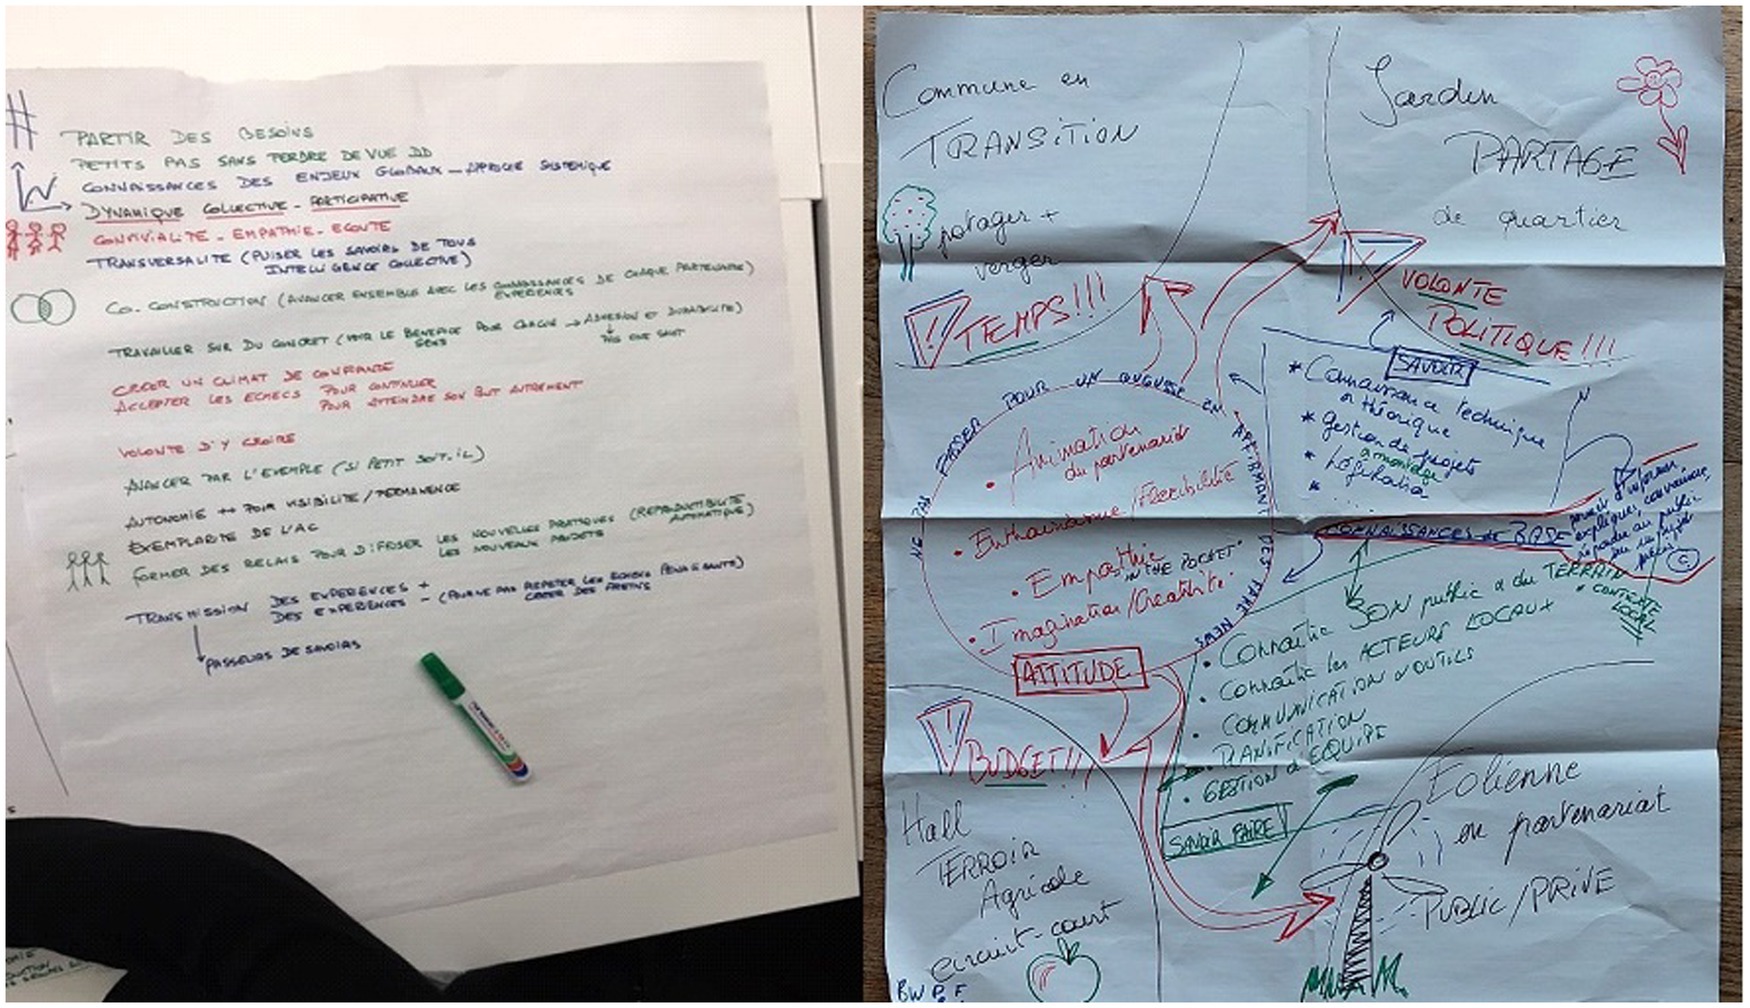 PARTIR DES BESOINS
PETITS PAS SANS PERDRE DE VUE DD
CONNAISSANCES DES ENJEUX GLOBAUX - APPROCHE SYSTEMIQUE
DYNAMIQUE COLLECTIVE - PARTICIPATIVE
CONVIVIALITE - EMPATHIE - ECOUTE
TRANSVERSALITE (PUISER LES SAVOIRS DE TOUS
INTELLIGENCE COLLECTIVE)
CO-CONSTRUCTION (AVANCER ENSEMBLE AVEC LES CONNAISSANCES DE CHAQUE PARTENAIRE)
EXPERIENCES
TRAVAILLER SUR DU CONCRET (VOIR LE BENEFICE POUR CHACUN → ADHESION ET DURABILITE)
SENS
CREER UN CLIMAT DE CONFIANCE
ACCEPTER LES ECHECS POUR CONTINUER
POUR ATTEINDRE SON BUT AUTREMENT
VOLONTE D'Y CROIRE
AVANCER PAR L'EXEMPLE (SI PETIT SOIT-IL)
AUTONOMIE ↔ POUR VISIBILITE / PERMANENCE
EXEMPLARITE DE L'AC
FORMER DES RELAIS POUR DIFFUSER LES NOUVELLES PRATIQUES (REPRODUCTIBILITE
LES NOUVEAUX PROJETS AUTOMATIQUE)
TRANSMISSION DES EXPERIENCES +
DES EXPERIENCES - (POUR NE PAS REPETER LES ECHECS PENALISANTS)
CREER DES FREINS
PASSEURS DE SAVOIRS
Commune en
TRANSITION
potager +
verger
Jardin
PARTAGE
de quartier
! TEMPS!!!
! VOLONTE
POLITIQUE!!!
NE PAS PASSER POUR UN GUGUSSE EN AFFIRMANT DES FAKE NEWS
• Animation
du partenariat
• Enthousiasme/Flexibilité
• Empathie
"IN THE POCKET"
• Imagination/Créativité
ATTITUDE
SAVOIR
* Connaissance technique
théorique
* gestion de projets
* Législation
* ...
CONNAISSANCES DE BASE
permet d'informer,
expliquer, convaincre,
répondre au public
• Connaître SON public du TERRAIN
• CONTEXTE
LOCAL
• Connaître les ACTEURS LOCAUX
• COMMUNICATION OUTILS
• PLANIFICATION
• GESTION d'EQUIPE
SAVOIR FAIRE
! BUDGET!!!
Hall
TERROIR
Agricole
circuit-court
BWPF
Eolienne
en partenariat
PUBLIC/PRIVE